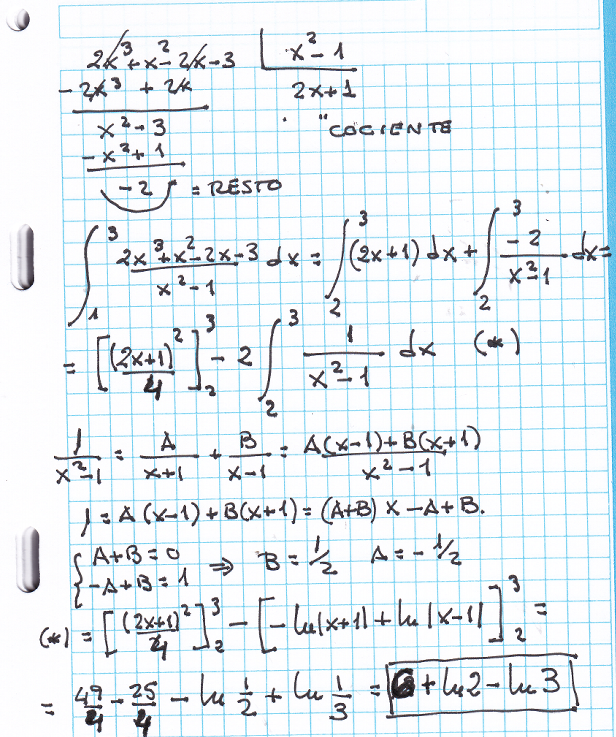 2x³+x²-2x-3 | x²-1
-2x³ +2x 2x+1
x²-3 "COCIENTE
-x²+1
-2 = RESTO
∫₁³ (2x³+x²-2x-3)/(x²-1) dx = ∫₂³ (2x+1) dx + ∫₂³ (-2)/(x²-1) dx =
= [(2x+1)²/4]₂³ - 2 ∫₂³ 1/(x²-1) dx (*)
1/(x²-1) = A/(x+1) + B/(x-1) = (A(x-1)+B(x+1))/(x²-1)
1 = A(x-1)+B(x+1) = (A+B)x -A+B.
{ A+B=0
-A+B=1 ⇒ B=1/2 A=-1/2
(*) = [(2x+1)²/4]₂³ - [-ln|x+1| + ln|x-1|]₂³ =
= 49/4 - 25/4 - ln 1/2 + ln 1/3 = 6 + ln 2 - ln 3